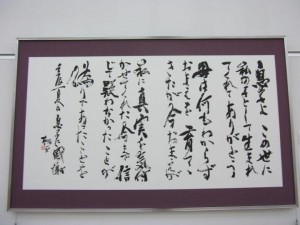 息子よ この世に
私の子として生まれ
てくれてありがとう
母は何もわからず
おまえを育てて
きたが 今 おまえが
私に真実を気付
かせてくれた 今まで信
じて疑わなかったことが
偽りであったことを
息子に感謝